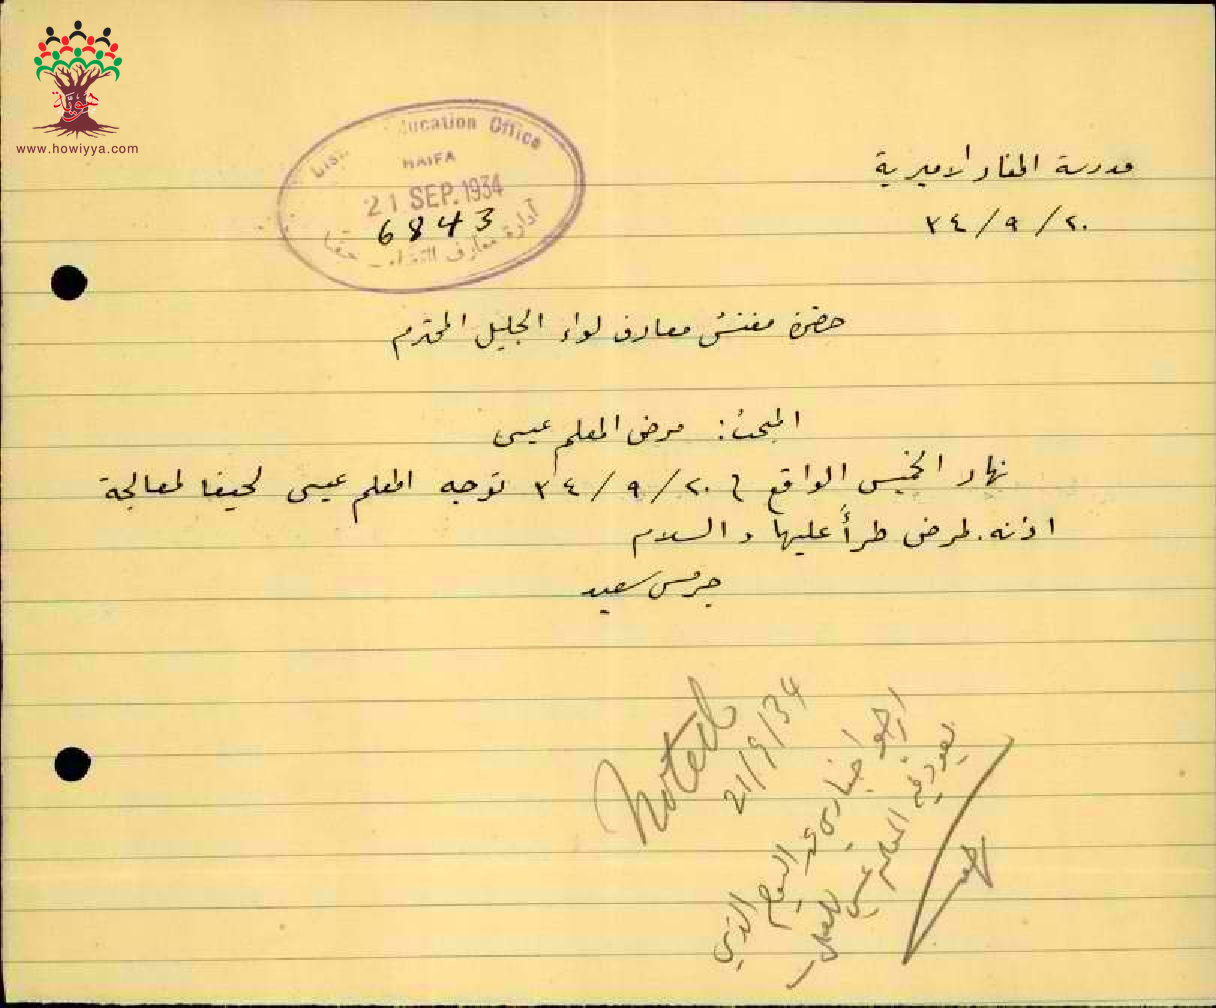 هوية
www.howiyya.com
Education Office
HAIFA
21 SEP. 1934
6843
مدرسة المغار الاميرية
٢٠ / ٩ / ٣٤
حضرة مفتش معارف لواء الجليل المحترم
المبحث: مرض المعلم عيسى
نهار الخميس الواقع في ٢٠ / ٩ / ٣٤ توجه المعلم عيسى لحيفا لمعالجة
اذنه. لمرض طرأ عليها والسلام
جرجس سعيد
Noted
21/9/34
ارجو اخباري عن اليوم الذي
يعود فيه المعلم عيسى للعمل